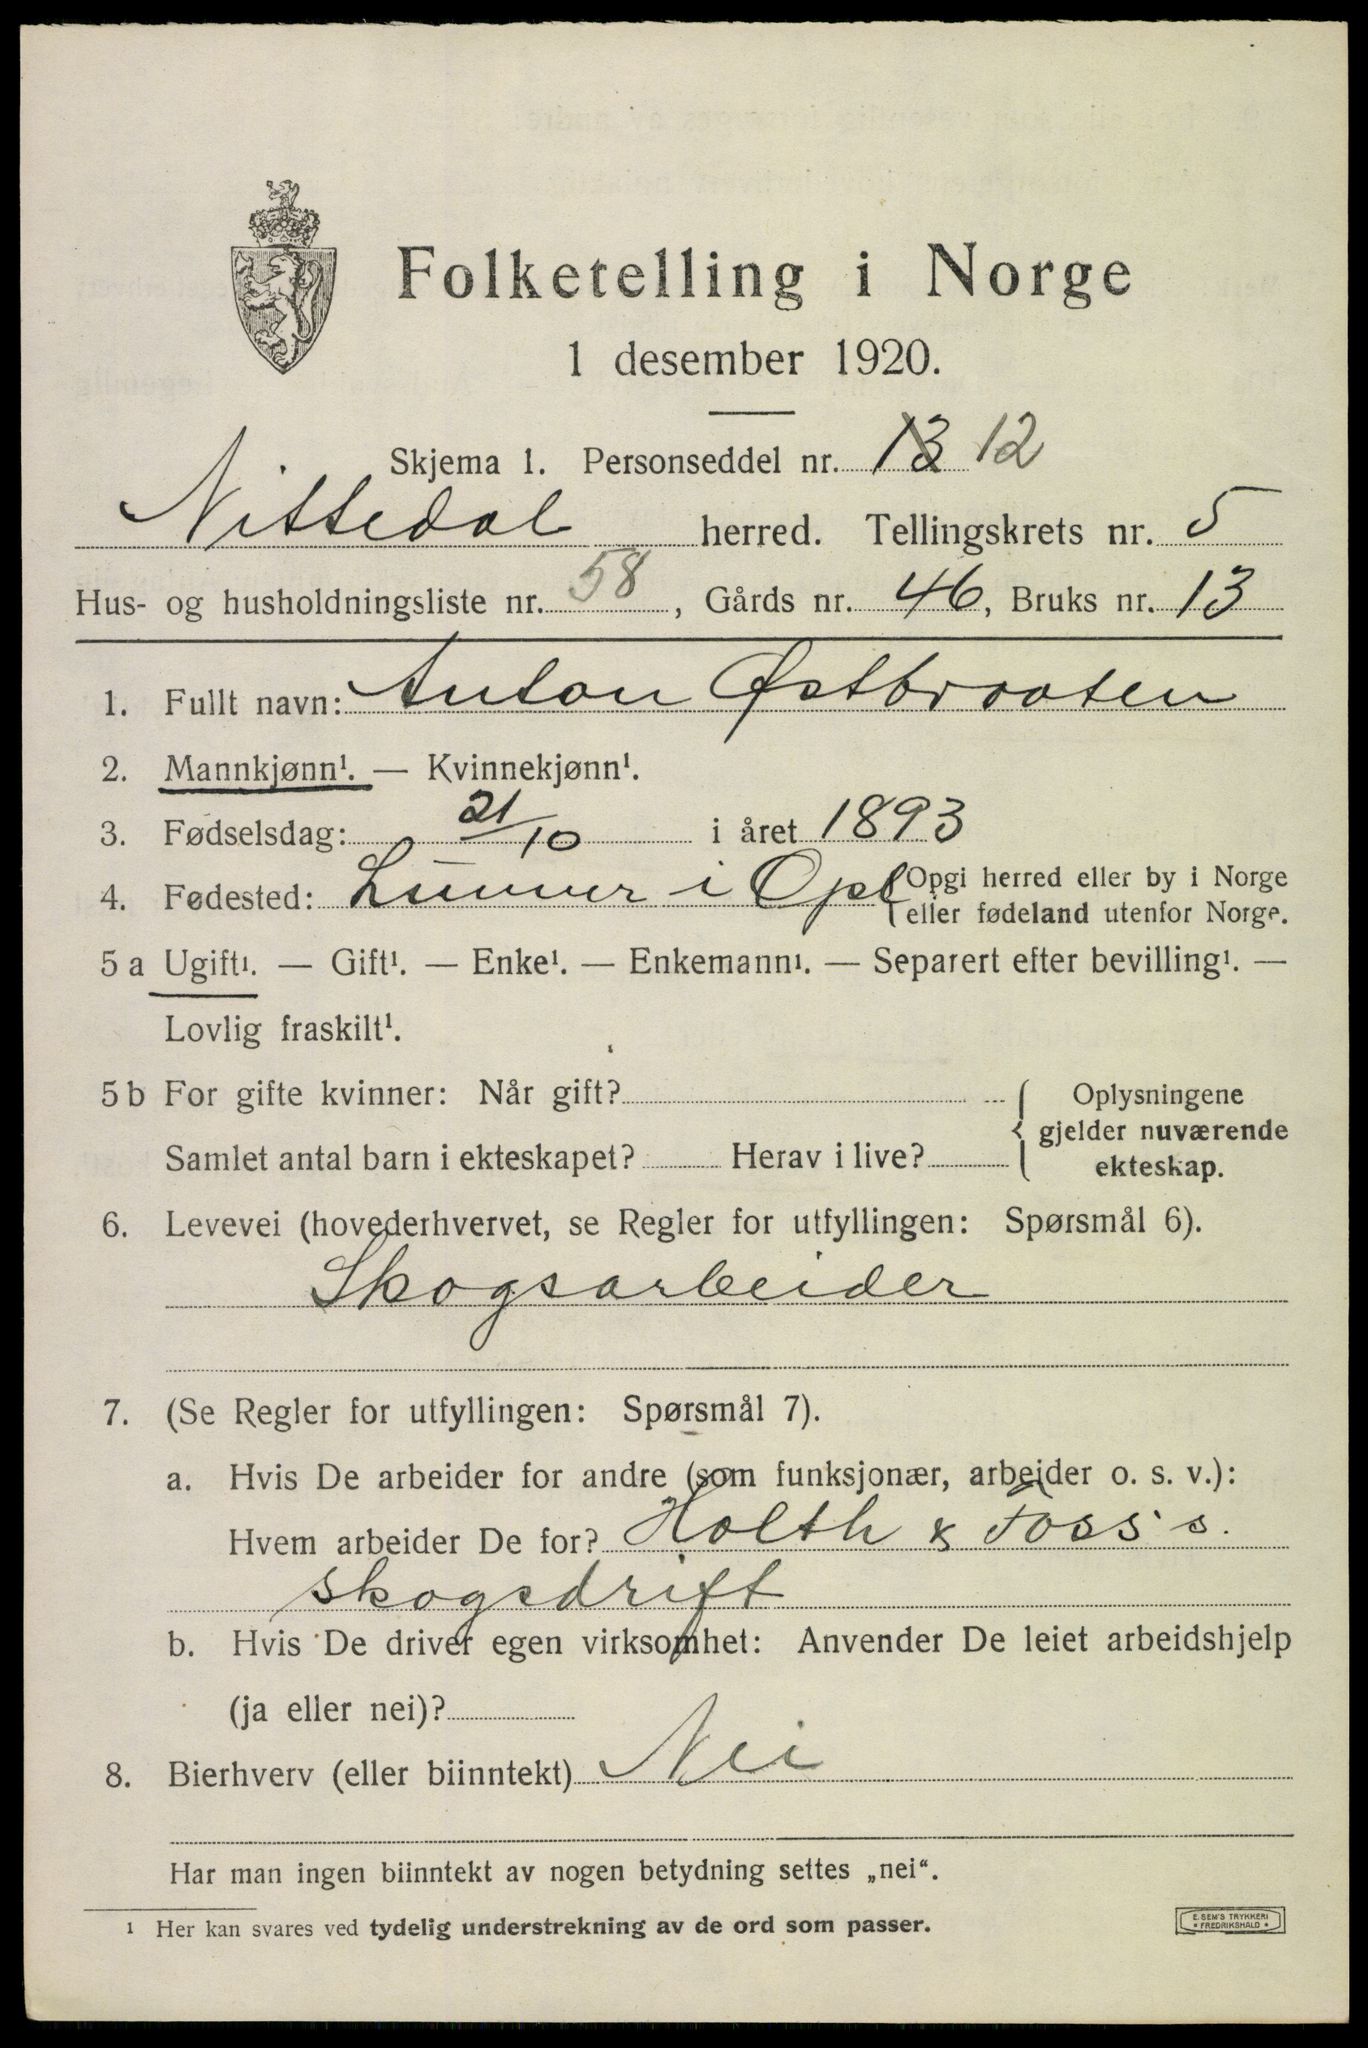 Folketelling i Norge
1 desember 1920.
Skjema 1. Personseddel nr. 13 12
Nittedal herred. Tellingskrets nr. 5
Hus- og husholdningsliste nr. 58, Gårds nr. 46, Bruks nr. 13
1. Fullt navn: Anton Østbraaten
2. Mannkjønn¹. — Kvinnekjønn¹.
3. Fødselsdag: 21/10 i året 1893
4. Fødested: Lunner i Opl { Opgi herred eller by i Norge
eller fødeland utenfor Norge.
5 a Ugift¹. — Gift¹. — Enke¹. — Enkemann¹. — Separert efter bevilling¹. —
Lovlig fraskilt¹.
5 b For gifte kvinner: Når gift?
Samlet antal barn i ekteskapet? Herav i live?
{ Oplysningene
gjelder nuværende
ekteskap.
6. Levevei (hovederhvervet, se Regler for utfyllingen: Spørsmål 6).
Skogsarbeider
7. (Se Regler for utfyllingen: Spørsmål 7).
a. Hvis De arbeider for andre (som funksjonær, arbeider o. s. v.):
Hvem arbeider De for? Holth & Foss's
skogsdrift
b. Hvis De driver egen virksomhet: Anvender De leiet arbeidshjelp
(ja eller nei)?
8. Bierhverv (eller biinntekt) Nei
Har man ingen biinntekt av nogen betydning settes „nei“.
¹ Her kan svares ved tydelig understrekning av de ord som passer.
E. SEM'S TRYKKERI
* FREDRIKSHALD *